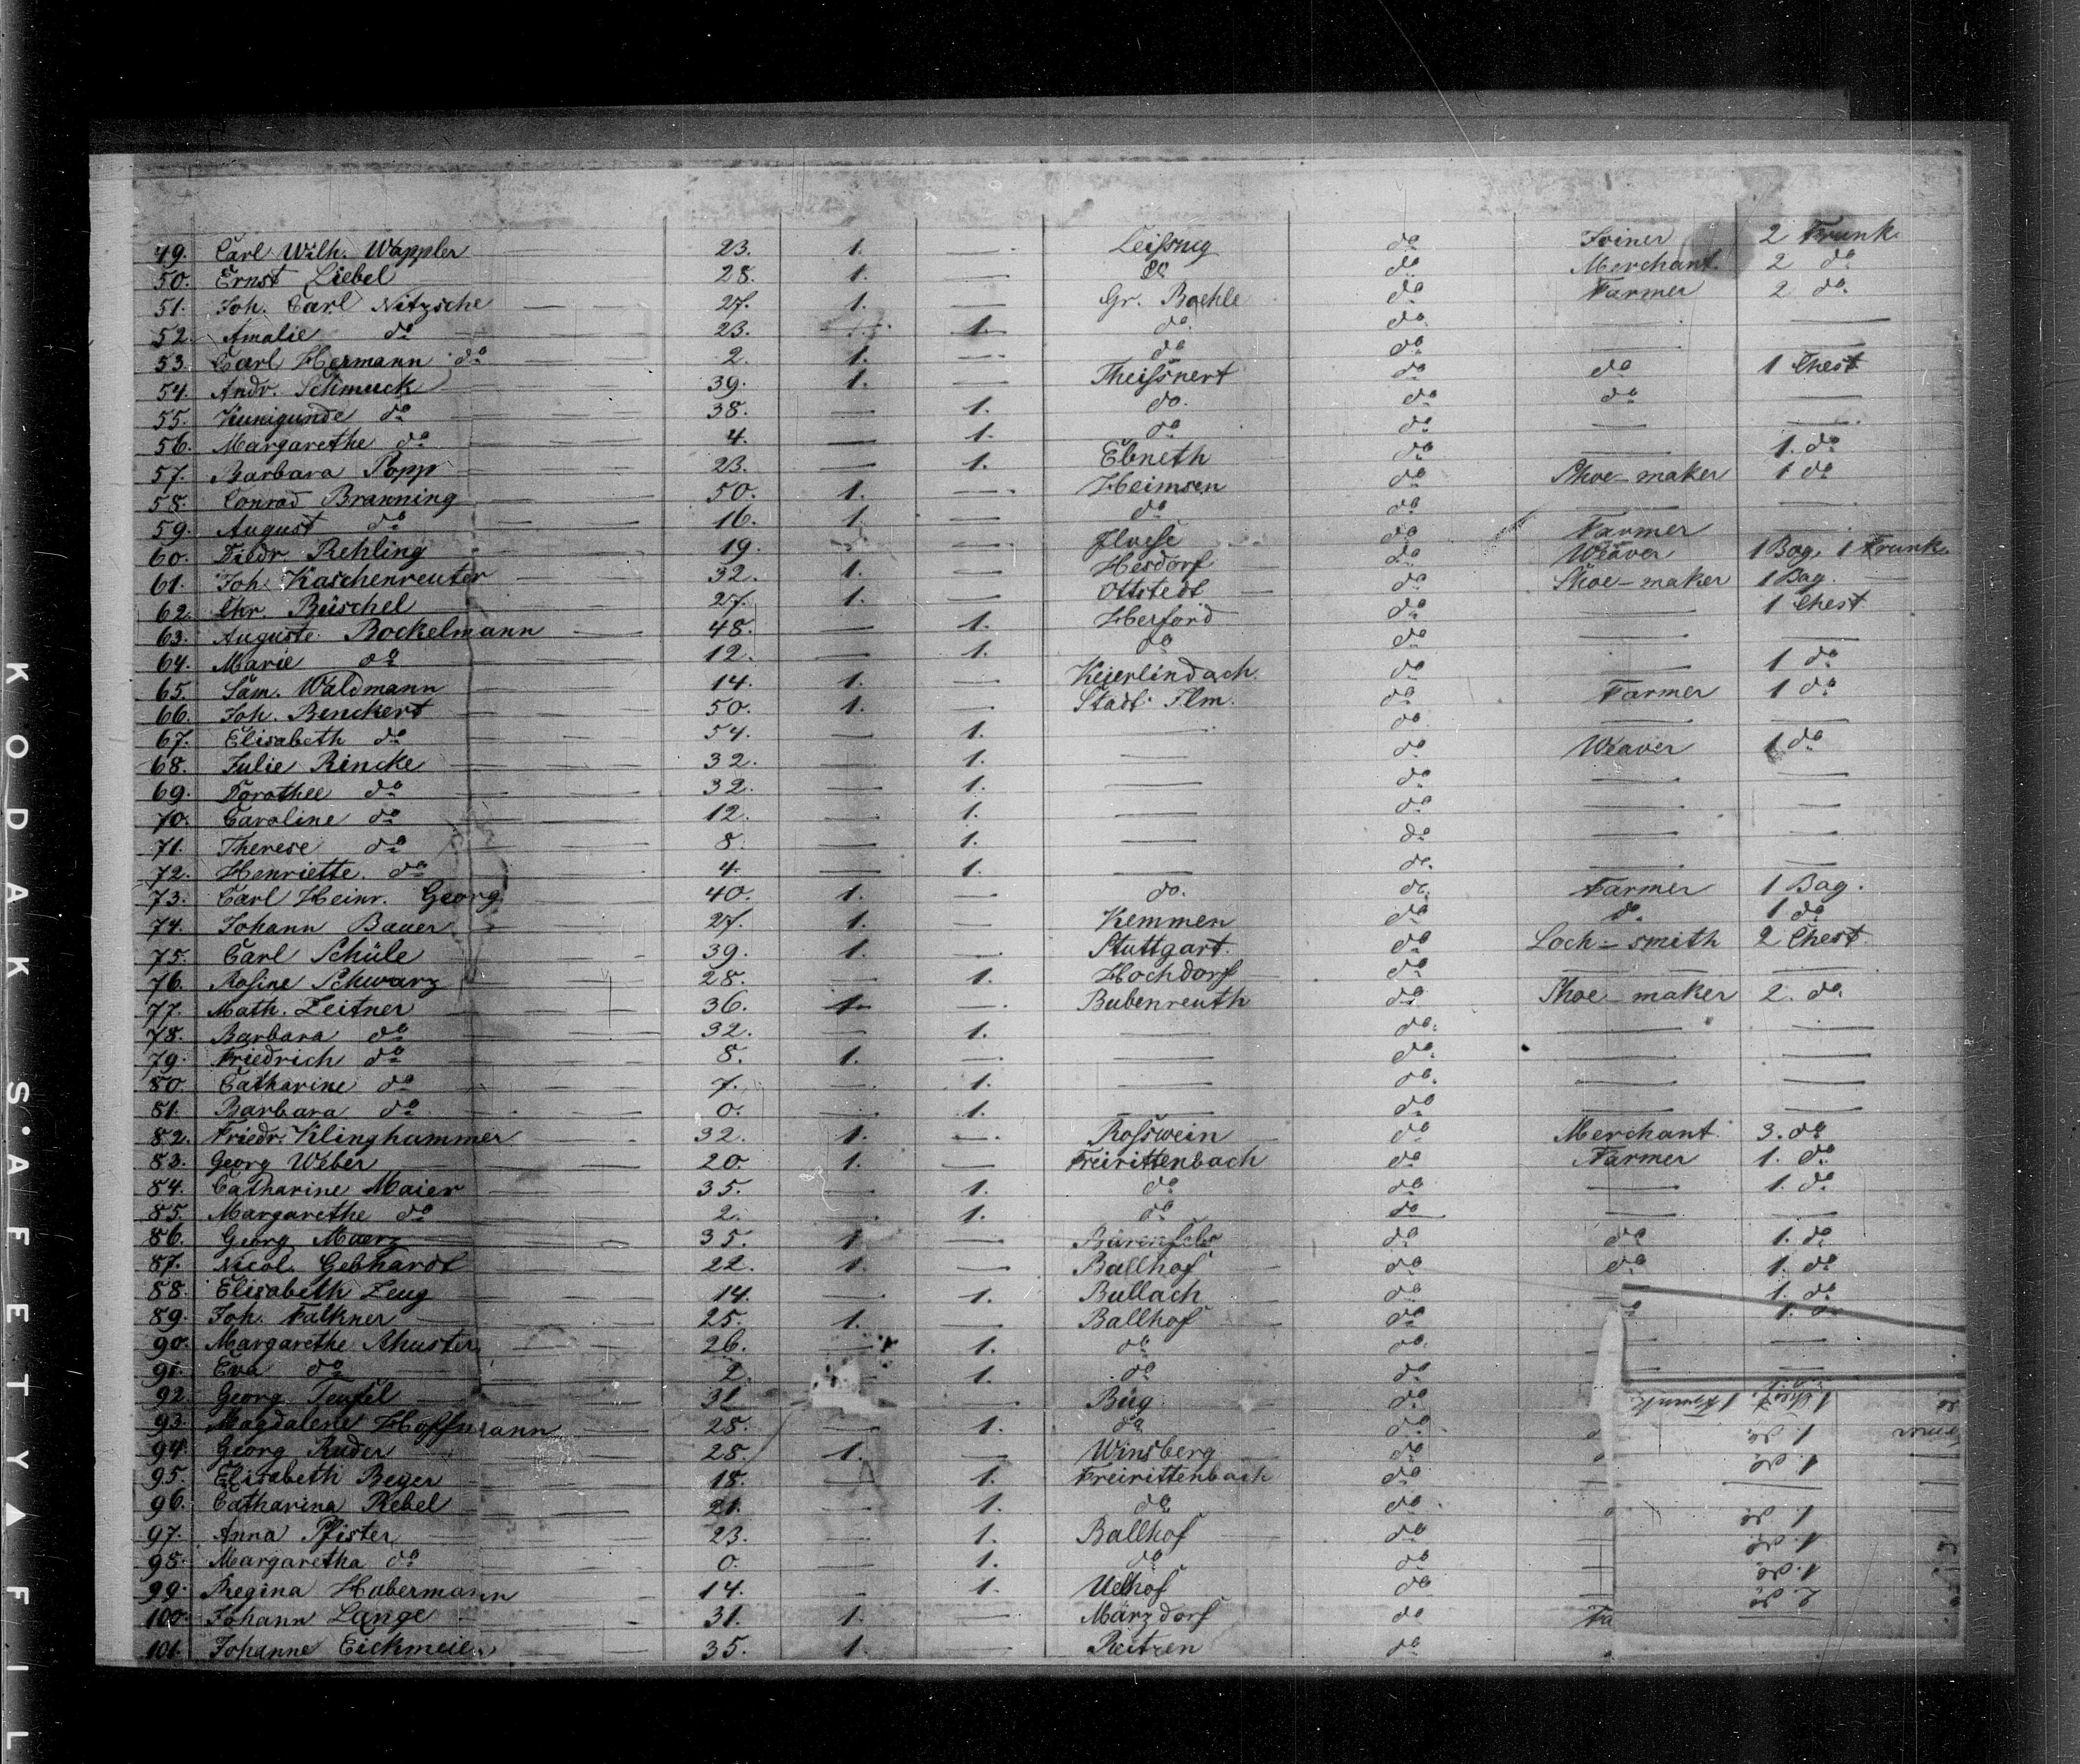 49. Carl Wilh. Wappler — 23. 1. — Leißnig do Joiner 2 Trunk
50. Ernst Liebel — 28. 1. — do do Merchant 2 do
51. Joh. Carl Nitzsche — 27. 1. — Gr. Boehle do Farmer 2 do
52. Amalie do — 23. 1. do do — —
53. Carl Hermann do — 2. 1. — do do —
54. Andr. Schmuck — 39. 1. — Theißnert do do 1 Chest
55. Kunigunde do — 38. — 1. do. do do —
56. Margarethe do — 4. — 1. do do — —
57. Barbara Popp — 23. — 1. Ebneth do — 1. do
58. Conrad Branning — 50. 1. — Heimsen do Shoe-maker 1 do
59. August do — 16. 1 — do do — —
60. Fredr. Rehling — 19. — Ilvese do Farmer —
61. Joh. Kaschenreuter — 32. 1. — Hesdorf do Weaver 1 Bag, 1 Trunk
62. Chr. Büschel — 27. 1. — Ottstedt do Shoe-maker 1 Bag.
63. Auguste Bockelmann — 48. — 1. Herford do — 1 Chest
64. Marie do — 12. — 1. do do — —
65. Sam. Waldmann — 14. 1. — Keierlindach do — 1 do
66. Joh. Benckert — 50. 1. — Stadt Ilm. do Farmer 1 do
67. Elisabeth do — 54. — 1. — do — —
68. Julie Rincke — 32. — 1. — do Weaver 1 do
69. Dorothee do — 32. — 1. — do — —
70. Caroline do — 12. — 1. — do — —
71. Therese do — 8. — 1. — do — —
72. Henriette do — 4. — 1. — do. — —
73. Carl Heinr. Georg 40. 1. — do. do. Farmer 1 Bag.
74. Johann Bauer — 27. 1. — Kemmen do do. 1 do
75. Carl Schüle — 39. 1. — Stuttgart. do Loch-smith 2 Chest
76. Rosine Schwarz — 28. — 1. Hochdorf do — —
77. Math. Zeitner — 36. 1. — Bubenreuth do Shoe-maker 2. do.
78. Barbara do — 32. — 1. — do. — —
79. Friedrich do — 8. 1. — — do. — —
80. Catharine do — 7. — 1. — do. — —
81. Barbara do — 0. — 1. — do — —
82. Friedr. Klinghammer — 32. 1. — Roßwein do Merchant. 3. do
83. Georg Weber — 20. 1. — Freirittenbach do Farmer 1. do
84. Catharine Maier — 35. — 1. do do — 1. do
85. Margarethe do — 2. — 1. do do — —
86. Georg Maerz — 35. 1 — Bärenfels do do 1. do
87. Nicol. Gebhardt — 22. 1. — Ballhof do do 1. do
88. Elisabeth Zeug — 14. — 1. Bullach do 1. do
89. Joh. Falkner — 25. 1. — Ballhof do do 1. do
90. Margarethe Shuster 26. — 1. do do. — —
91. Eva do — 2. 1. do do — —
92. Georg Teufel — 31 — Büg do
93. Magdalene Hoffmann 28. — 1. do do
94. Georg Ruder — 28. 1. — Winsberg do
95. Elisabeth Beyer — 18. — 1. Freirittenbach do —
96. Catharina Rebel — 21. — 1. do do
97. Anna Pfister — 23. — 1. Ballhof do —
98. Margaretha do — 0. — 1. do do —
99. Regina Habermann 14. — 1. Uelhof do —
100. Johann Lange — 31. 1. — Märzdorf do Fa
101. Johanne Eickmeier 35. 1. — Reitzen do
KODAK S·AFETY▲FIL